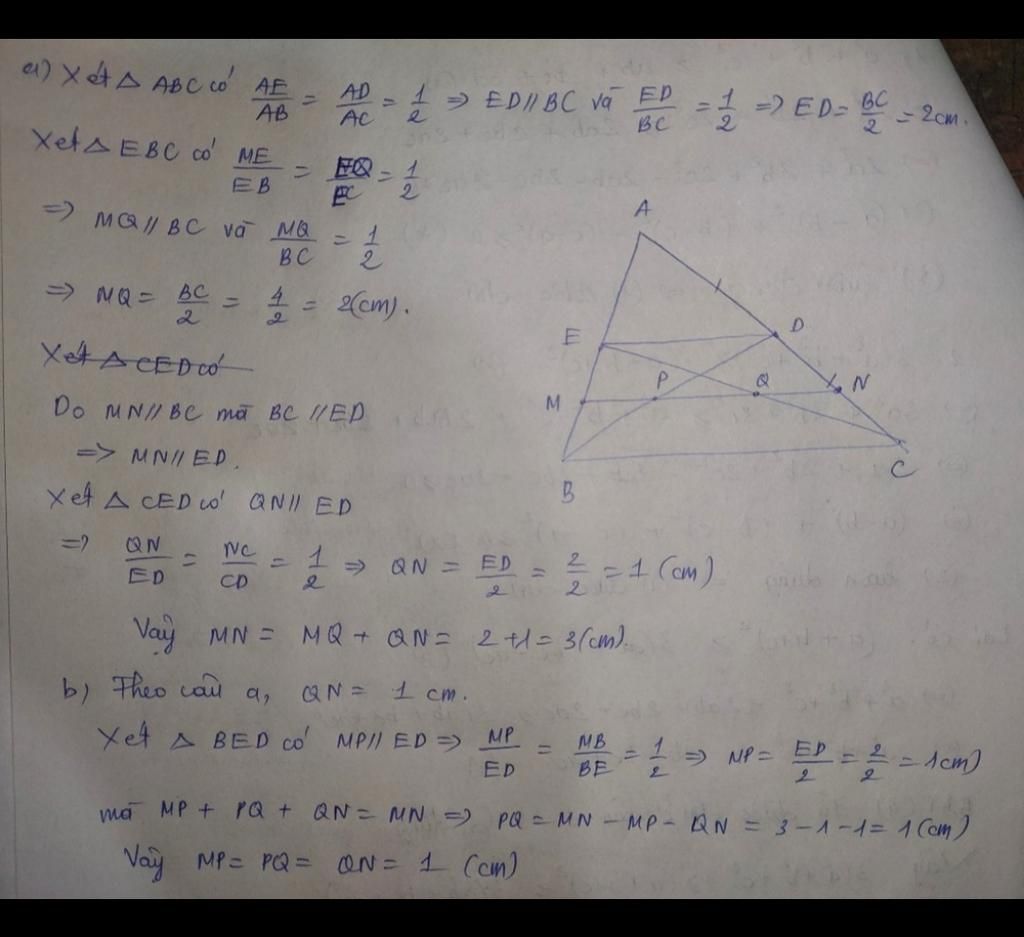 a) Xét △ ABC có AE/AB = AD/AC = 1/2 => ED // BC và ED/BC = 1/2 => ED = BC/2 = 2cm.
Xét △ EBC có ME/EB = EQ/EC = 1/2
=> MQ // BC và MQ/BC = 1/2
=> MQ = BC/2 = 4/2 = 2(cm).
Xét △ CED có
Do MN // BC mà BC // ED
=> MN // ED.
Xét △ CED có QN // ED
=> QN/ED = NC/CD = 1/2 => QN = ED/2 = 2/2 = 1 (cm)
Vậy MN = MQ + QN = 2+1 = 3(cm).
b) Theo câu a, QN = 1 cm.
Xét △ BED có MP // ED => MP/ED = MB/BE = 1/2 => MP = ED/2 = 2/2 = 1cm)
mà MP + PQ + QN = MN => PQ = MN - MP - QN = 3 - 1 - 1 = 1 (cm)
Vậy MP = PQ = QN = 1 (cm)
A
E
D
M
P
Q
N
B
C